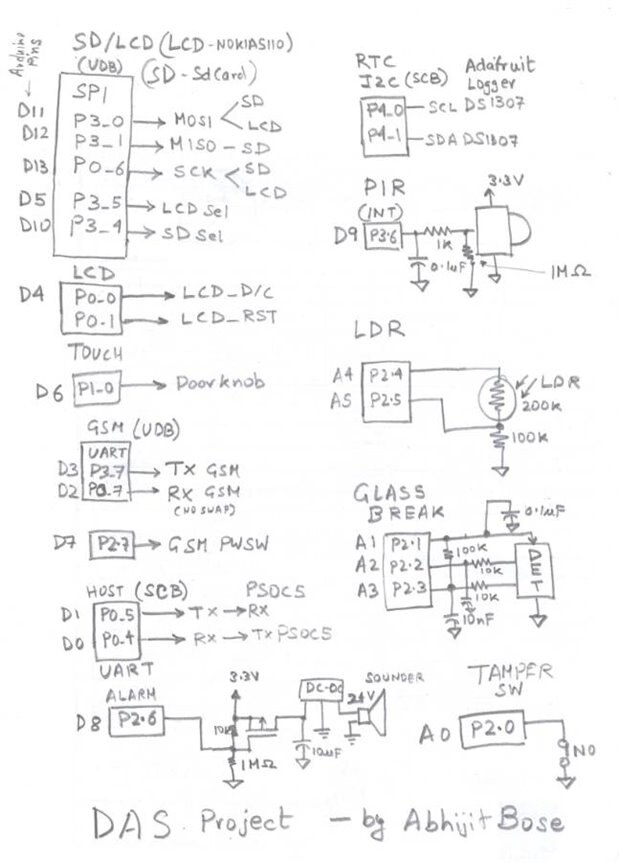 SD/LCD (LCD-NOKIA5110)
(UDB) (SD-SdCard)
Arduino Pins
SPI
D11 P3_0 MOSI SD LCD
D12 P3_1 MISO - SD
D13 P0_6 SCK SD LCD
D5 P3_5 LCD Sel
D10 P3_4 SD Sel
LCD
D4 P0_0 LCD_D/C
P0_1 LCD_RST
TOUCH
D6 P1_0 Doorknob
GSM (UDB)
UART
D3 P3_7 TX GSM
D2 P0_7 RX GSM
(NO SWAP)
D7 P2.7 GSM PWSW
HOST (SCB) PSOC5
D1 P0_5 TX RX
D0 P0_4 RX TX PSOC5
UART
ALARM
D8 P2.6
3.3V
10K
1MΩ
DC-DC
24V
SOUNDER
10uF
RTC
I2C (SCB) Adafruit
Logger
P4_0 SCL DS1307
P4_1 SDA DS1307
PIR
(INT)
3.3V
D9 P3.6
1K
0.1uF
1MΩ
LDR
A4 P2.4
A5 P2.5
LDR
200K
100K
GLASS
BREAK
0.1uF
A1 P2.1
A2 P2.2
A3 P2.3
100K
10K
10K
10nF
DET
TAMPER
SW
A0 P2.0
NO
DAS Project - by Abhijit Bose